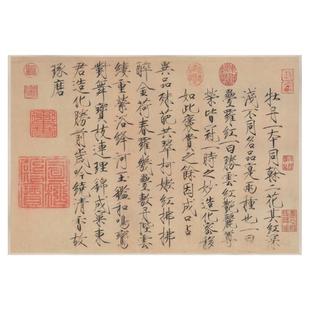 牡丹一本同幹二花其紅深
淺不同名品實兩種也一曰
疊羅紅一曰勝雲紅艷麗尊
榮皆冠一時之妙造化密移
如此褒賞之餘因成口占
異品殊葩共翠柯嫩紅拂拂
醉金荷春羅幾疊敷丹陛雲
縷重縈浴絳河玉鑑和鳴鸞
對舞寶枝連理錦成窠東
君造化勝前歲吟繞清香故
琢磨